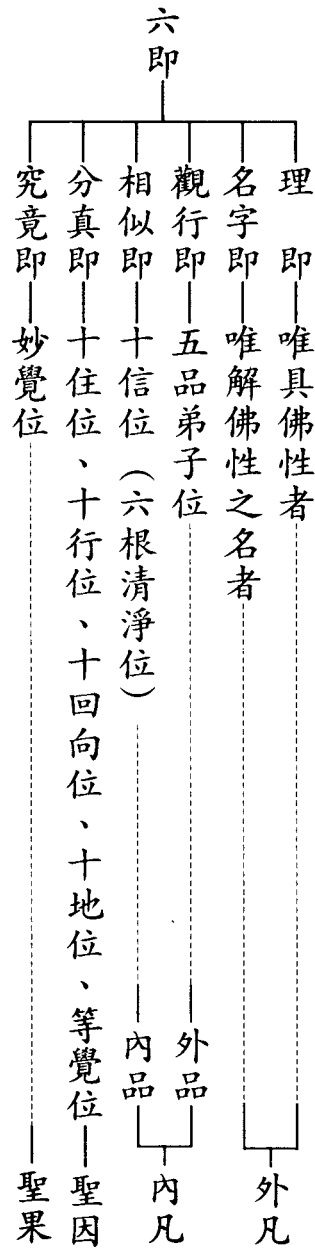 六即
理即　唯具佛性者
名字即　唯解佛性之名者
外凡
觀行即　五品弟子位　外品
相似即　十信位（六根清淨位）　內品
內凡
分真即　十住位、十行位、十回向位、十地位、等覺位　聖因
究竟即　妙覺位　聖果